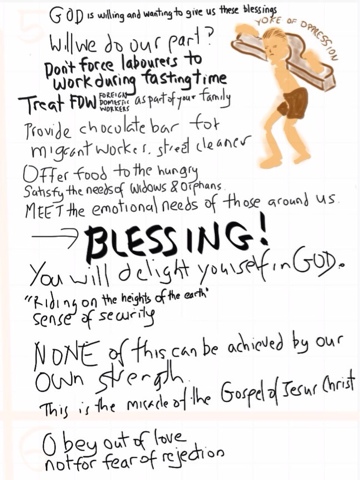 GOD is willing and wanting to give us these blessings
YOKE OF OPPRESSION
Will we do our part?
Don't force labourers to
work during fasting time
Treat FDW FOREIGN DOMESTIC WORKERS as part of your family
Provide chocolate bar for
migrant worker. street cleaner
Offer food to the hungry
Satisfy the needs of widows & Orphans.
MEET the emotional needs of those around us.
→ BLESSING!
You will delight yourself in GOD.
"Riding on the heights of the earth"
sense of security
NONE of this can be achieved by our
own strength.
This is the miracle of the Gospel of Jesus Christ
Obey out of love
not for fear of rejection